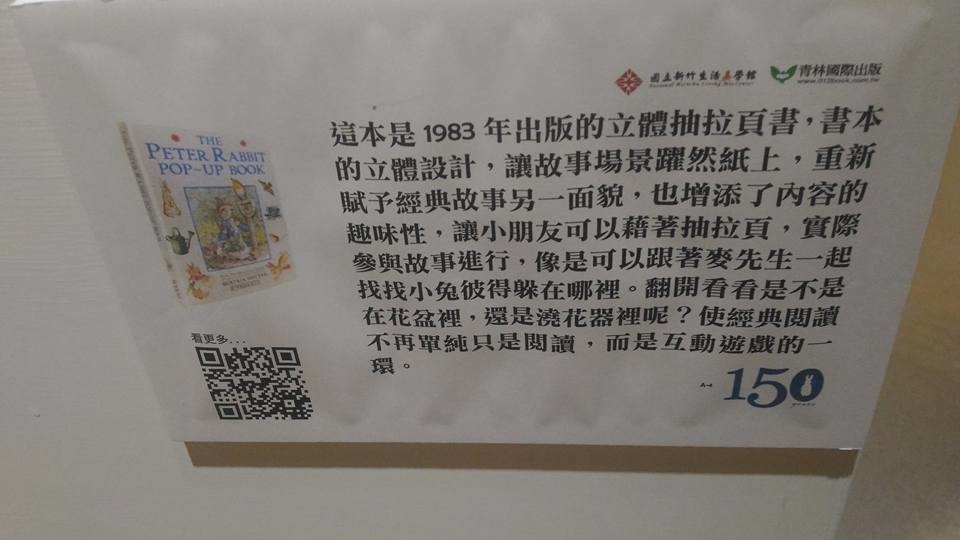 國立新竹生活美學館
青林國際出版
www.012book.com.tw
THE
PETER RABBIT
POP-UP BOOK
BEATRIX POTTER
這本是 1983 年出版的立體抽拉頁書，書本
的立體設計，讓故事場景躍然紙上，重新
賦予經典故事另一面貌，也增添了內容的
趣味性，讓小朋友可以藉著抽拉頁，實際
參與故事進行，像是可以跟著麥先生一起
找找小兔彼得躲在哪裡。翻開看看是不是
在花盆裡，還是澆花器裡呢？使經典閱讀
不再單純只是閱讀，而是互動遊戲的一
環。
看更多...
150
years